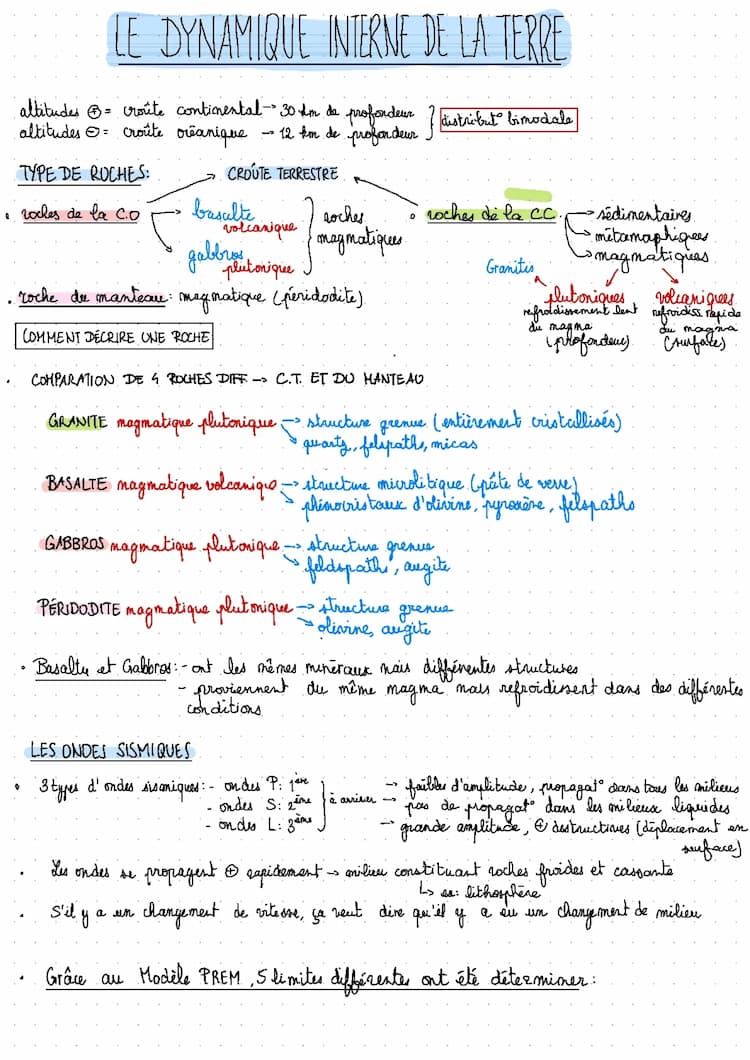 LE DYNAMIQUE INTERNE DE LA TERRE
altitudes ⊕ = croûte continental → 30 km de profondeur
altitudes ⊖ = croûte océanique → 12 km de profondeur
distribut° bimodale
TYPE DE ROCHES:
CROÛTE TERRESTRE
• roches de la C.O
basalte
volcanique
gabbros
plutonique
roches
magmatiques
• roches de la CC.
→ sédimentaires
→ métamaphiques
→ magmatiques
Granites
plutoniques
refroidissement lent
du magma
(profondeur)
volcaniques
refroidiss rapide
du magma
(surfaces)
• roche du manteau: magmatique (péridodite)
COMMENT DÉCRIRE UNE ROCHE
• COMPARATION DE 4 ROCHES DIFF → C.T. ET DU MANTEAU
GRANITE magmatique plutonique → structure grenue (entièrement cristallisés)
quartz, felspaths, micas
BASALTE magmatique volcanique → structure microlitique (pâte de verre)
phénocristaux d'olivine, pyroxène, felspaths
GABBROS magmatique plutonique → structure grenue
feldspaths, augite
PÉRIDODITE magmatique plutonique → structure grenue
olivine, augite
• Basalte et Gabbros: - ont les mêmes minéraux mais différentes structures
- proviennent du même magma mais refroidissent dans des différentes
conditions
LES ONDES SISMIQUES
• 3 types d'ondes sismiques: - ondes P: 1ère
- ondes S: 2ème
- ondes L: 3ème
à arriver
→ faibles d'amplitude, propagat° dans tous les milieux
→ pas de propagat° dans les milieux liquides
→ grande amplitude, ⊕ destructives (déplacement en
surface)
• Les ondes se propagent ⊕ rapidement → milieu constituant roches froides et cassante
↳ ex: lithosphère
• S'il y a un changement de vitesse, ça veut dire qu'il y a eu un changement de milieu
• Grâce au Modèle PREM, 5 limites différentes ont été déterminer: